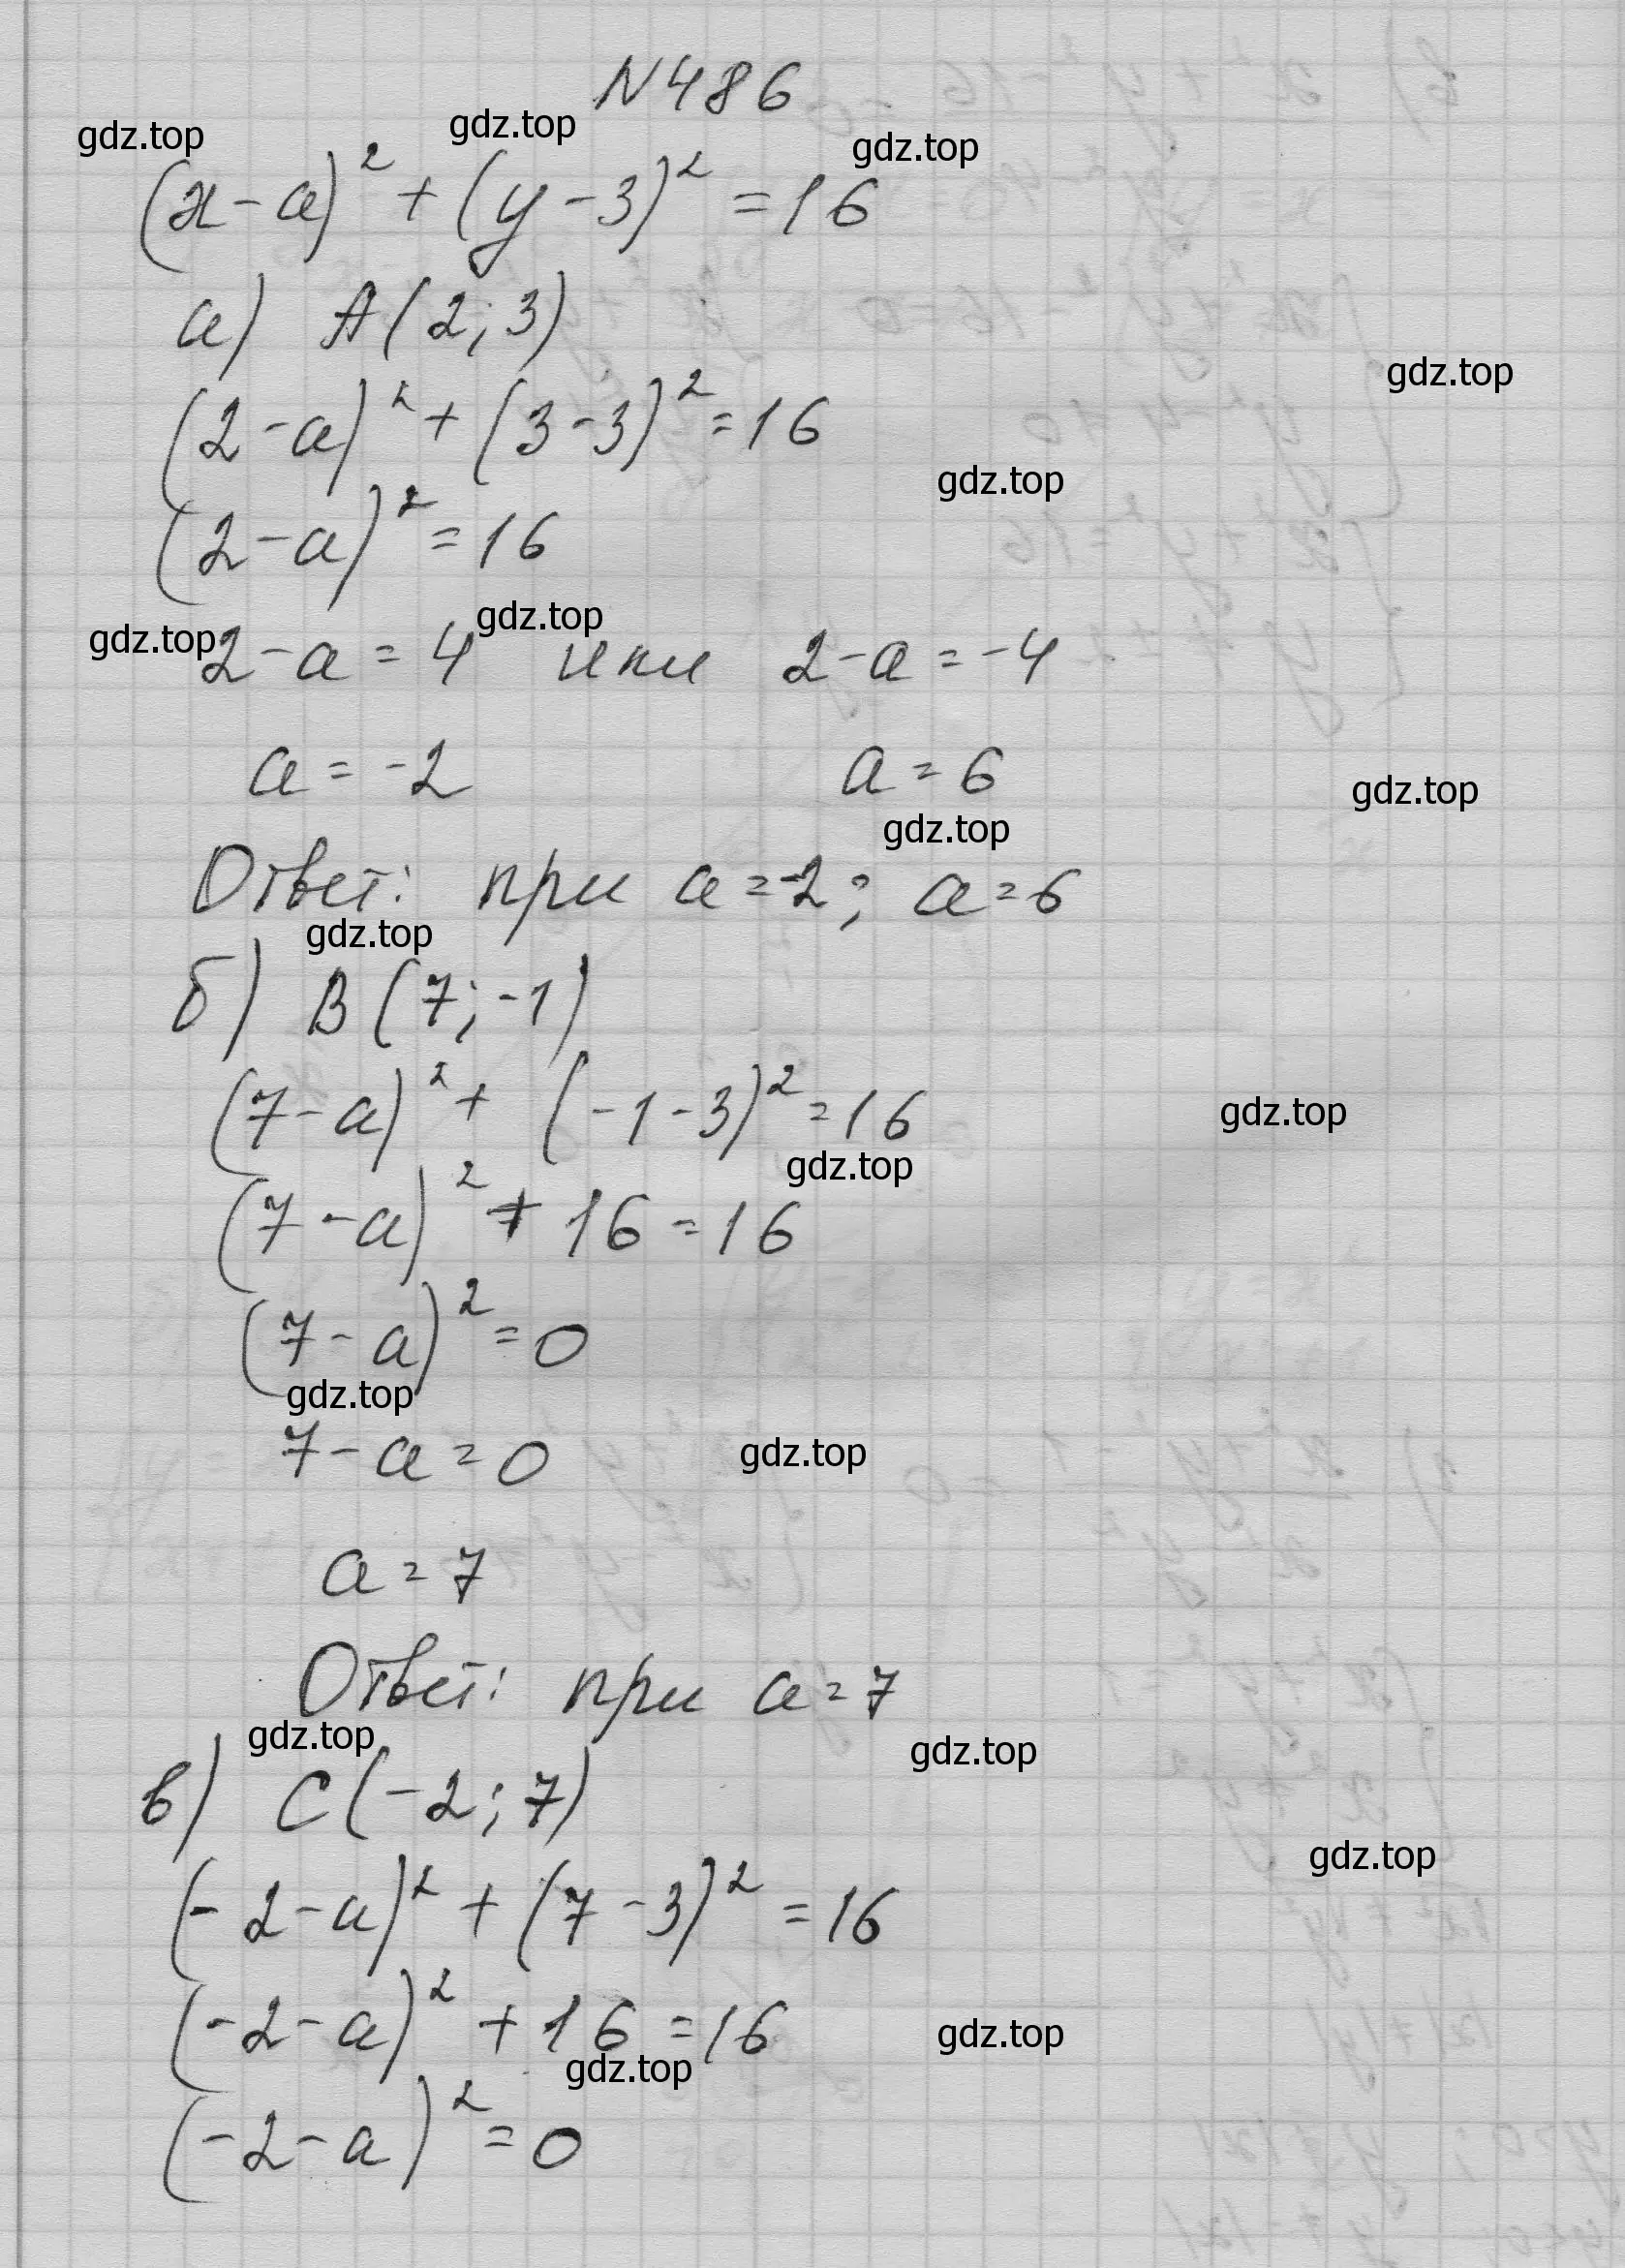 N486
gdz.top gdz.top gdz.top
(x-a)² + (y-3)² = 16
а) A(2; 3)
gdz.top
(2-a)² + (3-3)² = 16
gdz.top
(2-a)² = 16
gdz.top gdz.top
2-a = 4 или 2-a = -4
a = -2 a = 6
gdz.top
gdz.top
Ответ: при a = -2; a = 6
gdz.top
б) B(7; -1)
(7-a)² + (-1-3)² = 16
gdz.top
gdz.top
(7-a)² + 16 = 16
(7-a)² = 0
gdz.top
7-a = 0
gdz.top
a = 7
Ответ: при a = 7
gdz.top gdz.top
в) C(-2; 7)
gdz.top
(-2-a)² + (7-3)² = 16
(-2-a)² + 16 = 16
gdz.top
gdz.top
(-2-a)² = 0